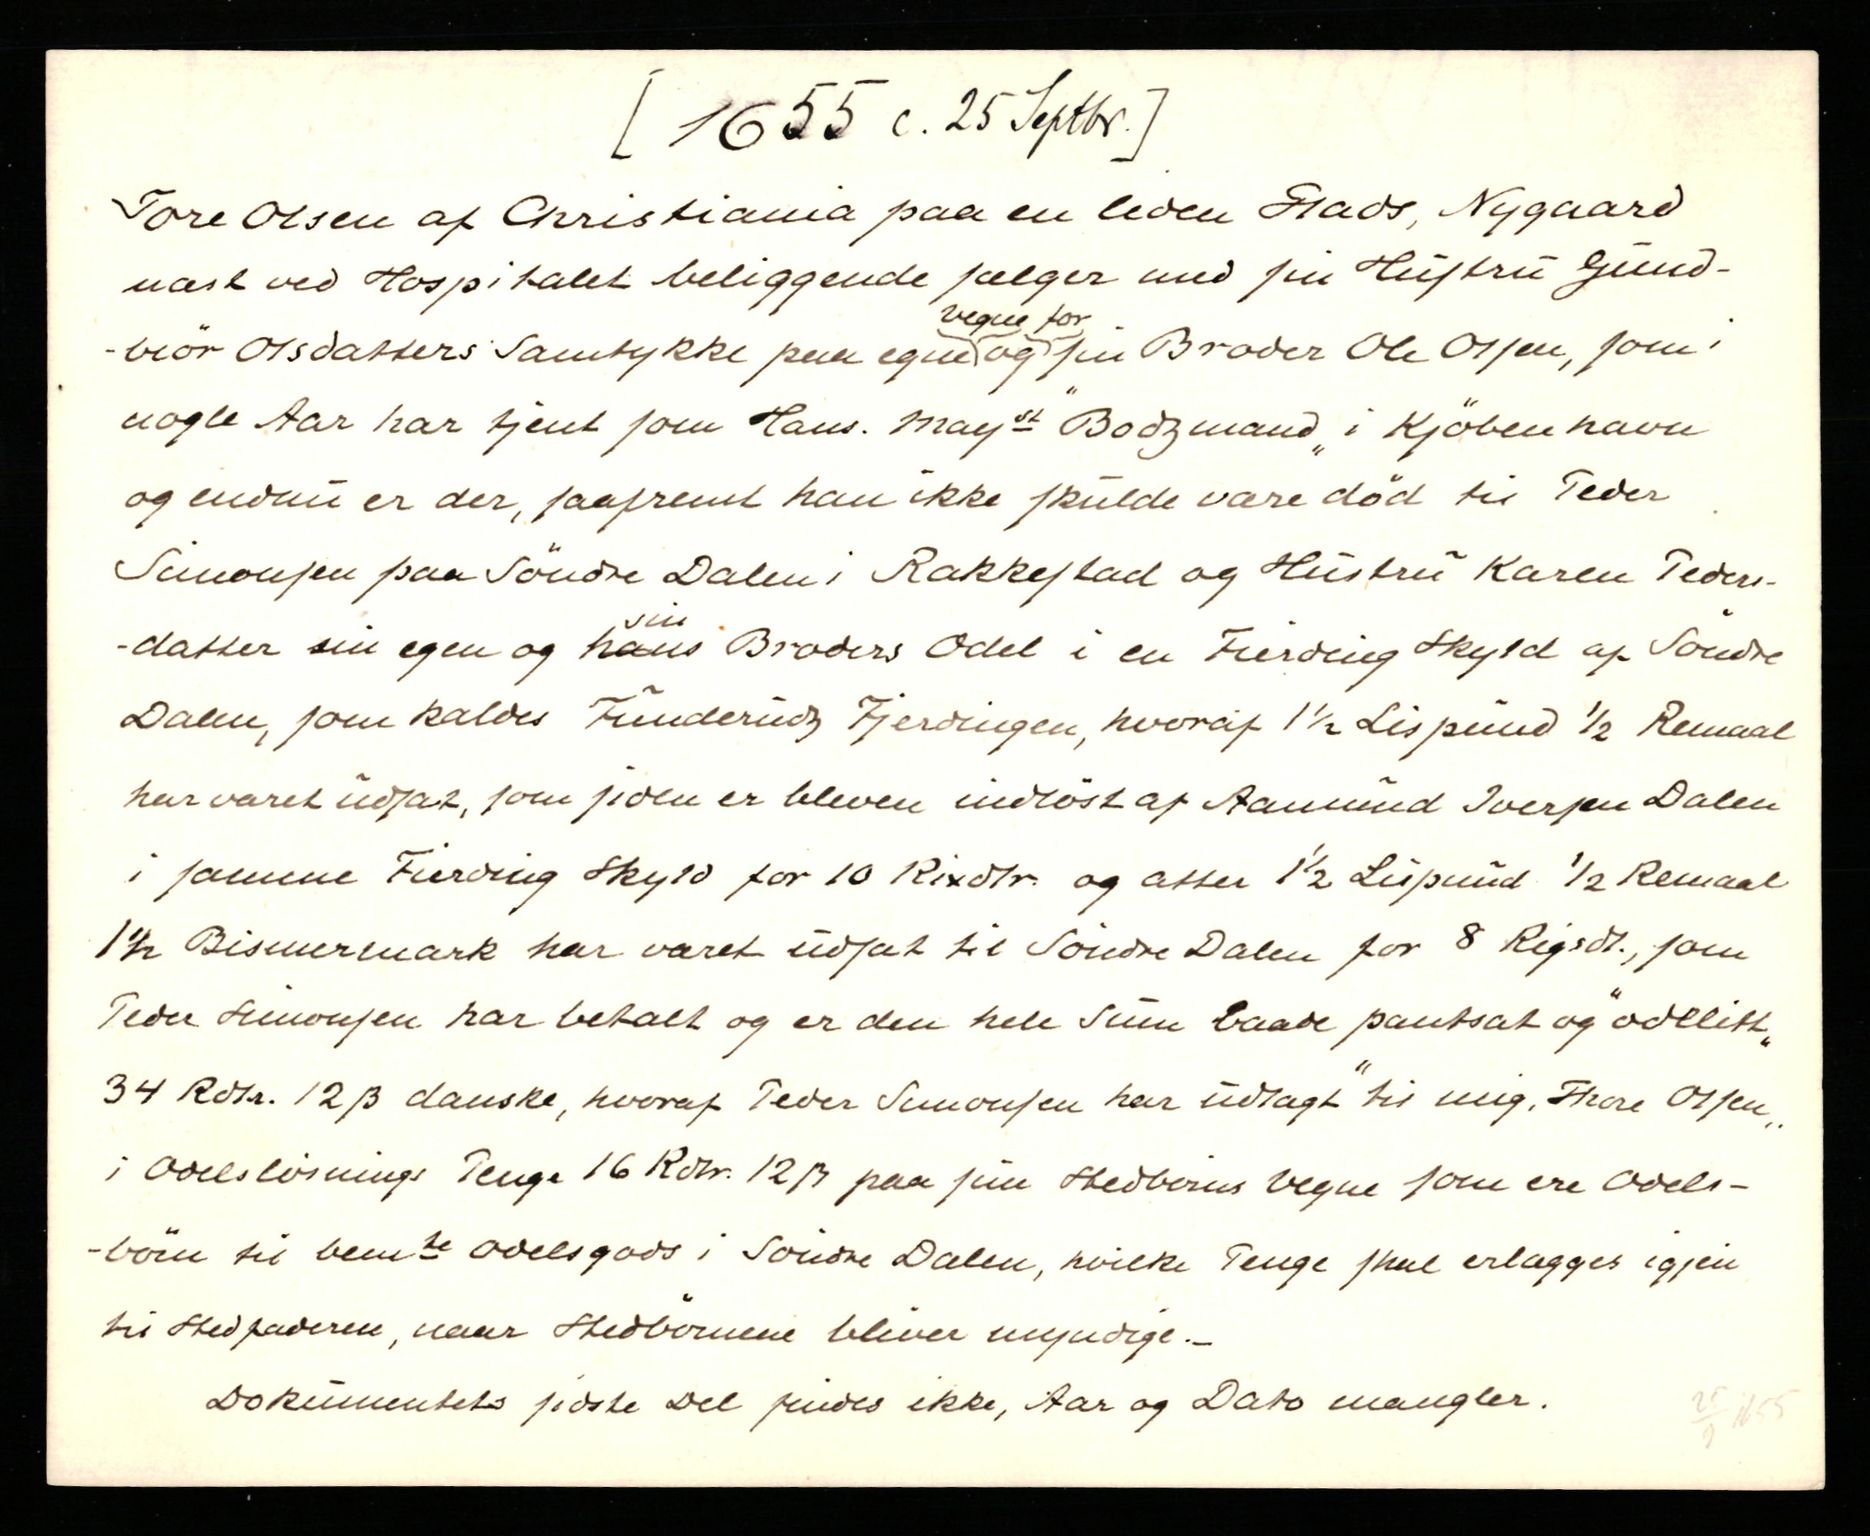 [1655 c. 25 Septbr.]
Tore Olsen af Christiania paa en liden Plads, Nygaard
næst ved Hospitalet beliggende sælger med sin Hustru Gund-
vegne for
-biör Olsdatters Samtykke paa egne og sin Broder Ole Olsen, som i
nogle Aar har tjent som Hans. Mayst "Bodzmand„ i Kjöbenhavn
og endnu er der, saafremt han ikke skulde være död til Peder
Simonsen paa Söndre Dalen i Rakkestad og Hustru Karen Peders-
sin
-datter sin egen og hans Broders Odel i en Fierding Skyld af Söndre
Dalen, som kaldes Funderudz Fjerdingen, hvoraf 1½ Lispund ½ Remaal
har været udsat, som siden er bleven indlöst af Aamund Iversen Dalen
i samme Fierding Skyld for 10 Rixdlr. og atter 1½ Lispund ½ Remaal
1½ Bismermark har været udsat til Söndre Dalen for 8 Rigsdl., som
Peder Simonsen har betalt og er den hele Sum baade pantsat og "odellitt„
34 Rdlr. 12 β danske, hvoraf Peder Simonsen har udlagt "til mig, Thore Olsen„
i Odelslösnings Penge 16 Rdlr. 12 β paa sine Stedbörns Vegne som ere Odels-
-börn til bemte Odelsgods i Söndre Dalen, hvilke Penge skal erlægges igjen
til Stedfaderen, naar Stedbörnene bliver myndige.-
Dokumentets sidste Del findes ikke, Aar og Dato mangler.
25/9 1655